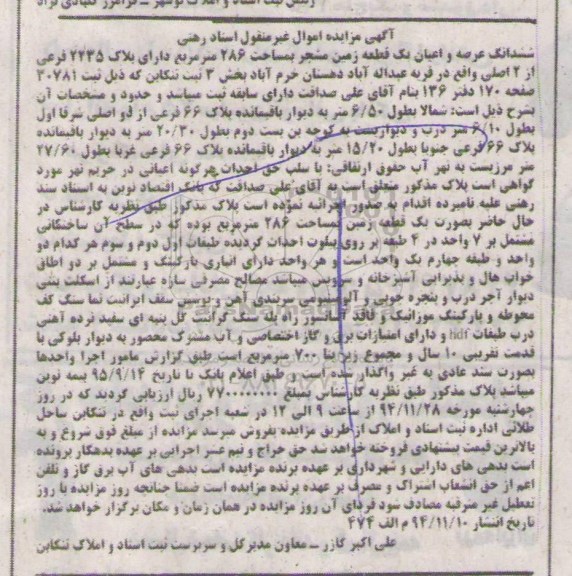 رئیس ثبت اسناد و املاک نوشهر ــ فرامرز
آگهی مزایده اموال غیرمنقول اسناد رهنی
ششدانگ عرصه و اعیان یک قطعه زمین مشجر بمساحت ۲۸۶ مترمربع دارای پلاک ۲۲۳۵ فرعی
از ۲ اصلی واقع در قریه عبداله آباد دهستان خرم آباد بخش ۳ ثبت تنکابن که ذیل ثبت ۳۰۷۸۱
صفحه ۱۷۰ دفتر ۱۳۶ بنام آقای علی صداقت دارای سابقه ثبت میباشد و حدود و مشخصات آن
بشرح ذیل است: شمالا بطول ۶/۵۰ متر به دیوار باقیمانده پلاک ۶۶ فرعی از دو اصلی شرقا اول
بطول ۶/۱۰ متر درب و دیواریست به کوچه بن بست دوم بطول ۲۰/۳۰ متر به دیوار باقیمانده
پلاک ۶۶ فرعی جنوبا بطول ۱۵/۲۰ متر به دیوار باقیمانده پلاک ۶۶ فرعی غربا بطول ۲۷/۶۰
متر مرزیست به نهر آب حقوق ارتفاقی: با سلب حق احداث هرگونه اعیانی در حریم نهر مورد
گواهی است پلاک مذکور متعلق است به آقای علی صداقت که بانک اقتصاد نوین به استناد سند
رهنی علیه نامبرده اقدام به صدور اجرائیه نموده است پلاک مذکور طبق نظریه کارشناس در
حال حاضر بصورت یک قطعه زمین بمساحت ۲۸۶ مترمربع بوده که در سطح آن ساختمانی
مشتمل بر ۷ واحد در ۴ طبقه بر روی پیلوت احداث گردیده طبقات اول دوم و سوم هر کدام دو
واحد و طبقه چهارم یک واحد است و هر واحد دارای انباری پارکینگ و مشتمل بر دو اطاق
خواب هال و پذیرایی آشپزخانه و سرویس میباشد مصالح مصرفی سازه عبارتند از اسکلت بتنی
دیوار آجر درب و پنجره چوبی و آلومینیومی سربندی آهن و پوشش سقف ایرانیت نما سنگ کف
محوطه و پارکینگ موزائیک و فاقد آسانسور راه پله سنگ گرانیت گل پنبه ای سفید نرده آهنی
درب طبقات hdf و دارای امتیازات برق و گاز اختصاصی و آب مشترک محصور به دیوار بلوکی با
قدمت تقریبی ۱۰ سال و مجموع زیربنا ۷۰۰ مترمربع است طبق گزارش مامور اجرا واحدها
بصورت سند عادی به غیر واگذار شده است و طبق اعلام بانک تا تاریخ ۹۵/۹/۱۴ بیمه نوین
میباشد پلاک مذکور طبق نظریه کارشناس بمبلغ ۷۷۰۰۰۰۰۰۰۰ ریال ارزیابی گردید که در روز
چهارشنبه مورخه ۹۴/۱۱/۲۸ از ساعت ۹ الی ۱۲ در شعبه اجرای ثبت واقع در تنکابن ساحل
طلائی اداره ثبت اسناد و املاک از طریق مزایده بفروش میرسد مزایده از مبلغ فوق شروع و به
بالاترین قیمت پیشنهادی فروخته خواهد شد حق حراج و نیم عشر اجرایی بر عهده بدهکار پرونده
است بدهی های دارایی و شهرداری بر عهده برنده مزایده است بدهی های آب برق گاز و تلفن
اعم از حق انشعاب اشتراک و مصرف بر عهده برنده مزایده است ضمنا چنانچه روز مزایده با روز
تعطیل غیر مترقبه مصادف شود فردای آن روز مزایده در همان زمان و مکان برگزار خواهد شد.
تاریخ انتشار ۹۴/۱۱/۱۰ م الف ۴۷۴
علی اکبر گازر ــ معاون مدیرکل و سرپرست ثبت اسناد و املاک تنکابن